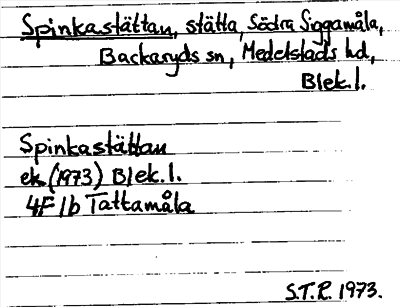 Spinkastättan, stätta, Södra Siggamåla,
Backaryds sn, Medelstads hd,
Blek. l.
Spinkastättan
ek (1973) Blek. l.
4F 1b Tattamåla
S.T.R. 1973.